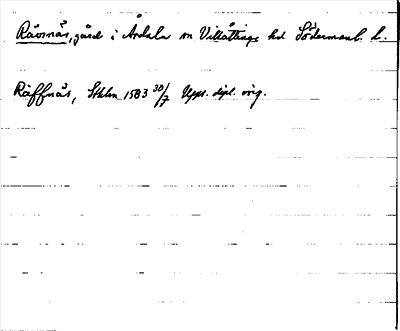 Rävsnäs, gård i Årdala sn Villåttinge hd Södermanl. l.
Räffnäs, Sthlm 1583 30/7 Upps. dipl. orig.